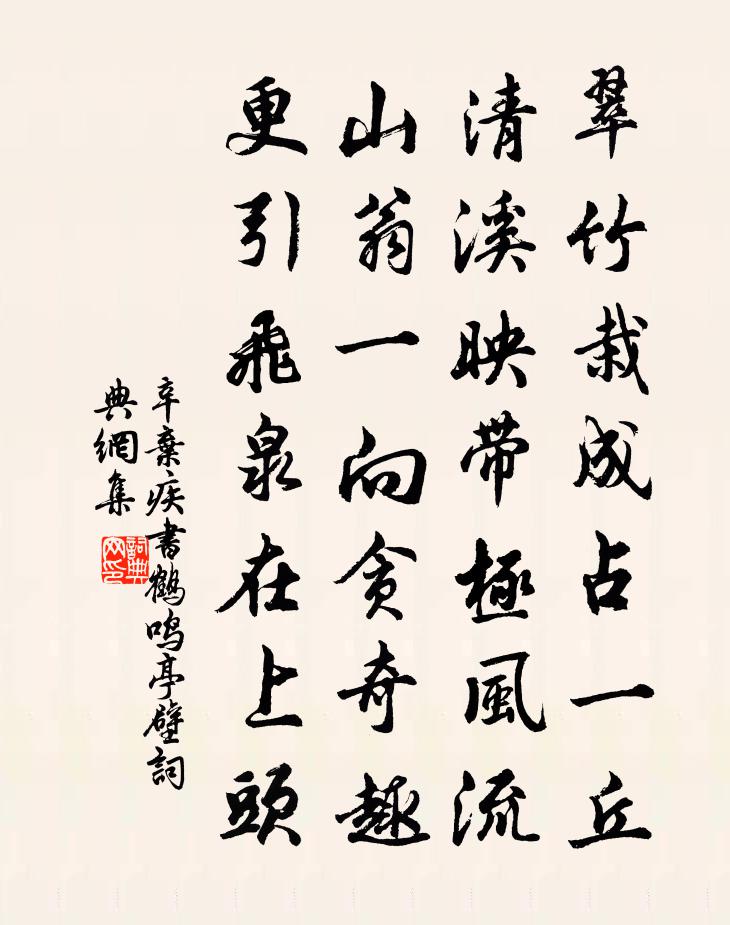 翠竹栽成占一丘
清溪映带極風流
山翁一向贪奇趣
更引飛泉在上頭
辛棄疾書鶴鸣亭壁詞
典網集
詞典
网印